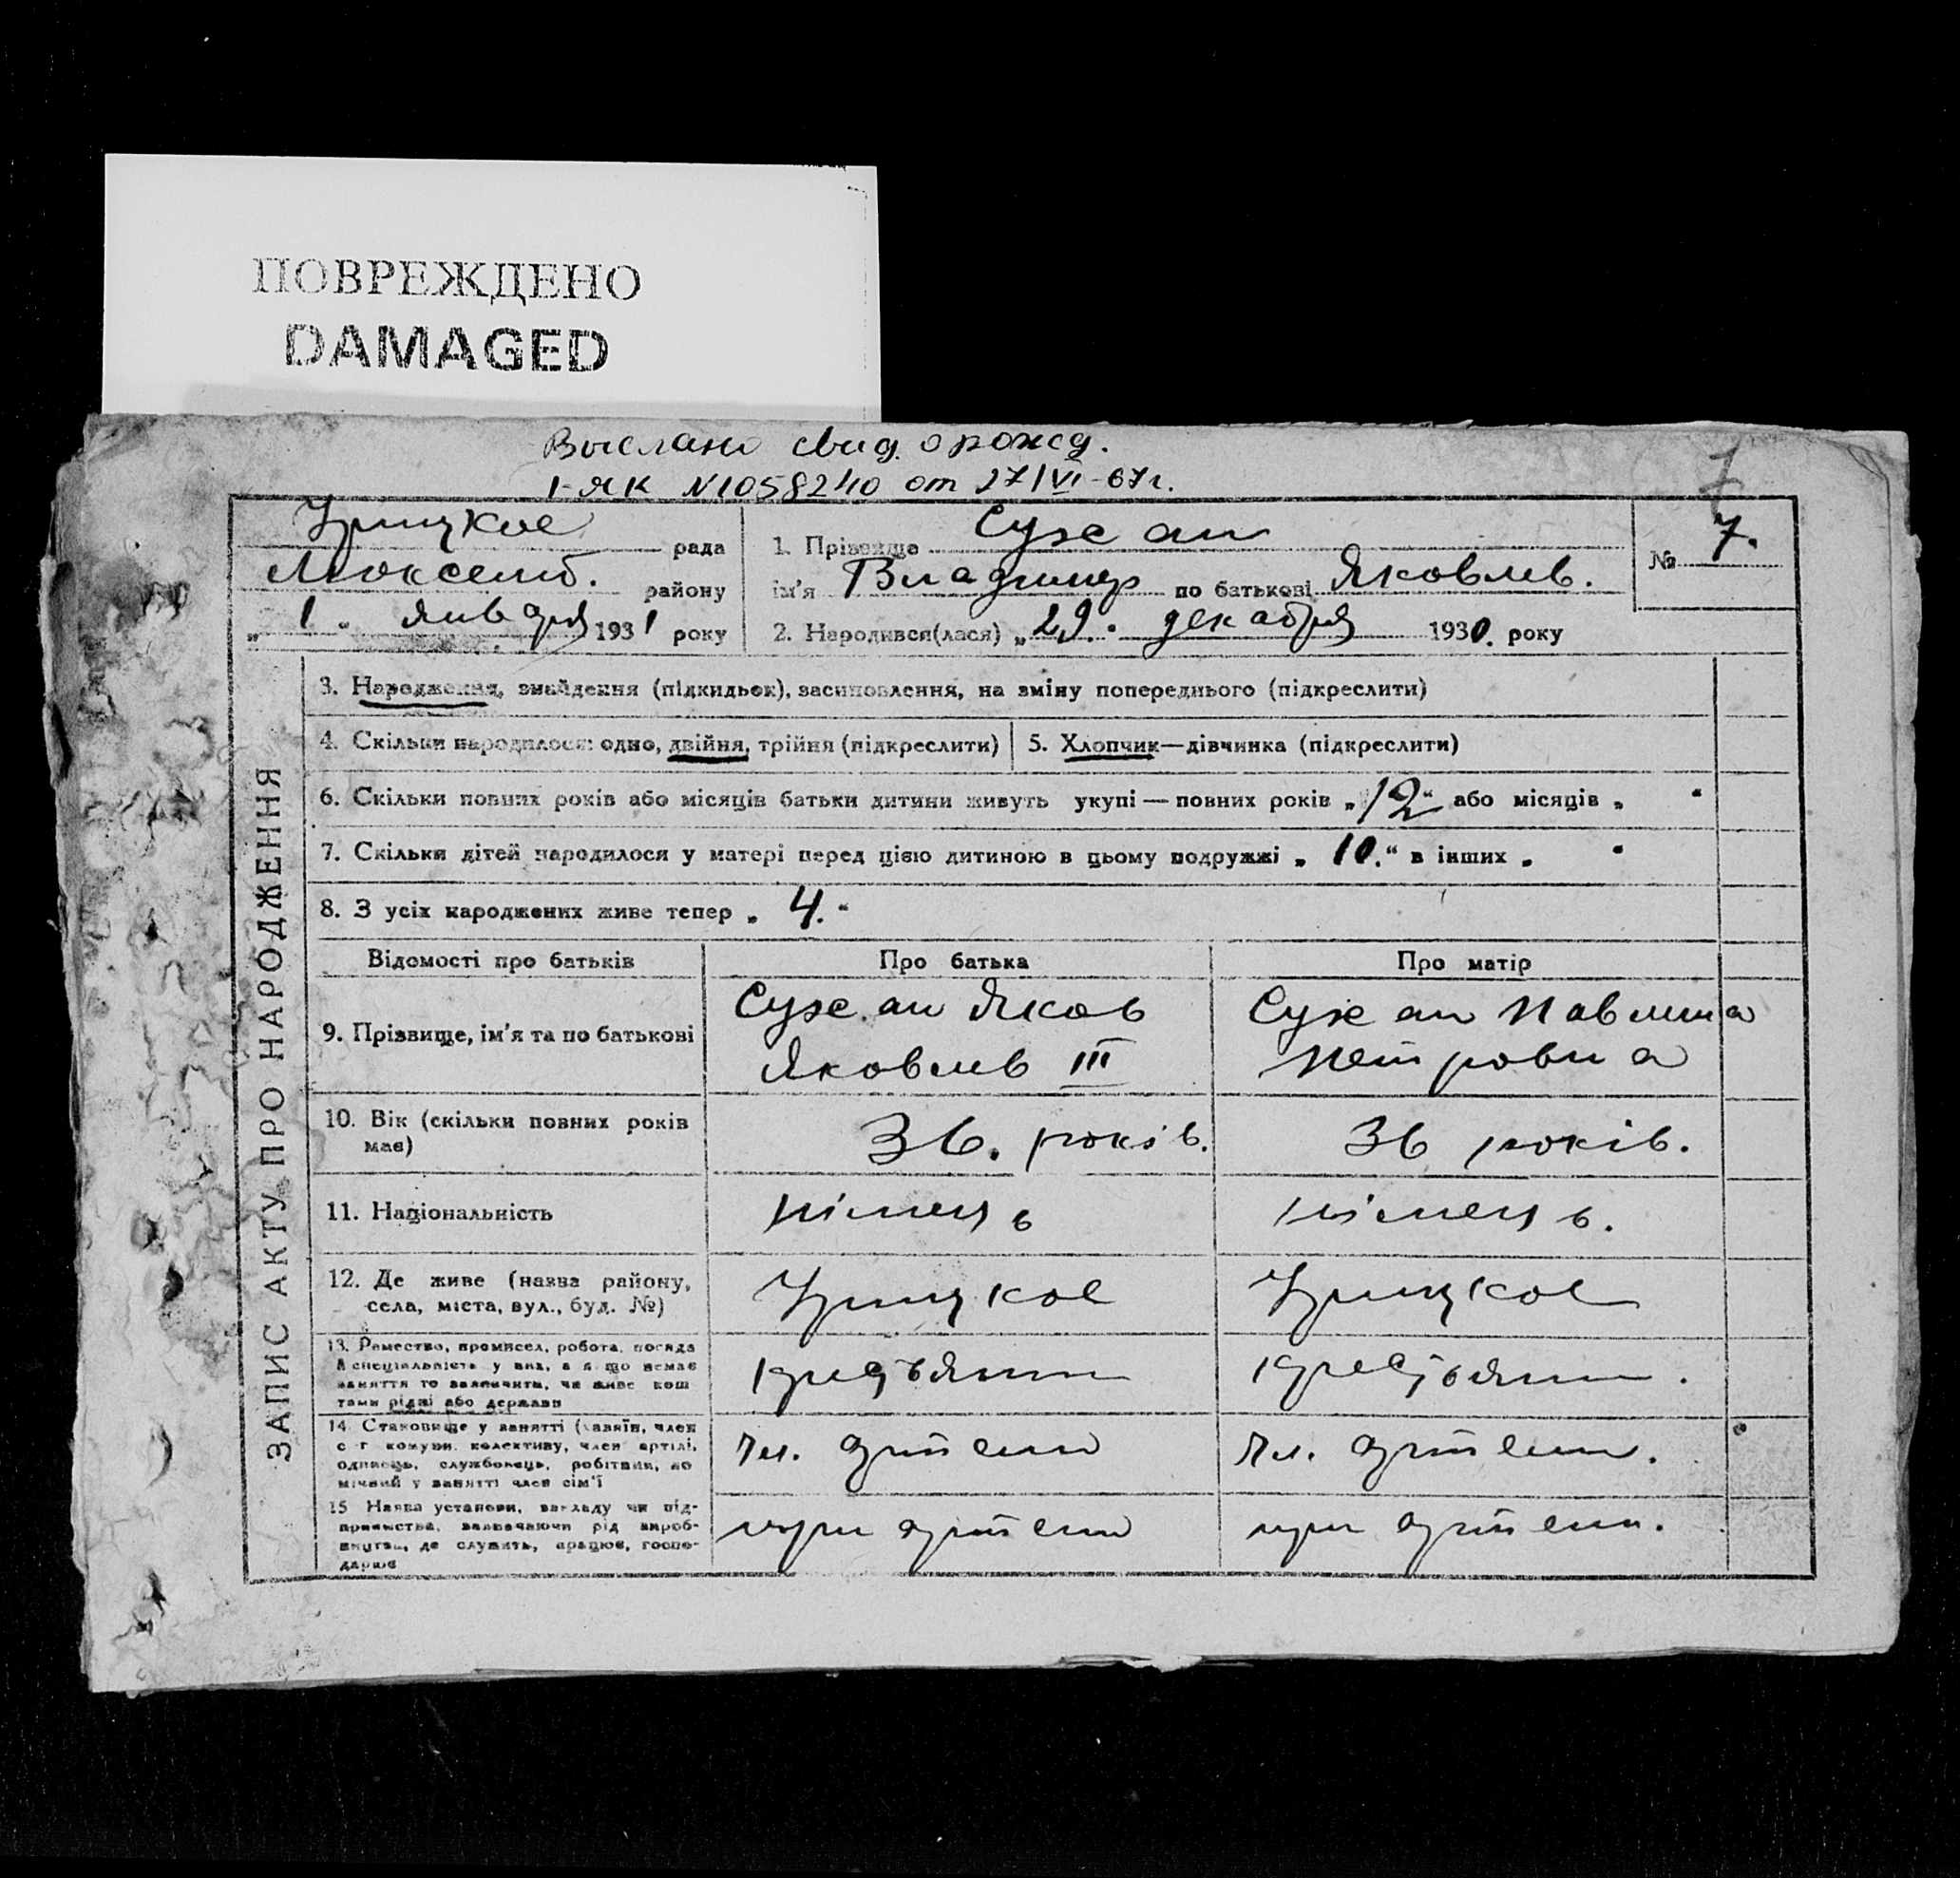 ПОВРЕЖДЕНО
DAMAGED
Выслано свид. о рожд.
I-ЯК №1058240 от 27/VI-67 г.
7
Урицкое рада
Люксемб. району
„1" января 1931 року
1. Прізвище Сужан
ім'я Владимир по батькові Яковлев.
2. Народився(лася) „29" декабря 1930. року
№ 7.
ЗАПИС АКТУ ПРО НАРОДЖЕННЯ
3. Народження, знайдення (підкидьок), засиновлення, на зміну попереднього (підкреслити)
4. Скільки народилося: одно, двійня, трійня (підкреслити)
5. Хлопчик—дівчинка (підкреслити)
6. Скільки повних років або місяців батьки дитини живуть укупі — повних років „12" або місяців „ "
7. Скільки дітей народилося у матері перед цією дитиною в цьому подружжі „10." в інших „ "
8. З усіх народжених живе тепер „4."
Відомості про батьків
Про батька
Про матір
9. Прізвище, ім'я та по батькові
Сужан Яков
Яковлев III
Сужан Павлина
Петровна
10. Вік (скільки повних років
має)
36. років.
36 років.
11. Національність
німець
німець.
12. Де живе (назва району,
села, міста, вул., буд. №)
Урицкое
Урицкое
13. Ремество, промисел, робота, посада
й спеціальність у них, а якщо немає
заняття то зазначити, чи живе кош
тами рідні або держави
14. Становище у занятті (хазяїн, член
с-г комуни, колективу, член артілі,
одинець, службовець, робітник, по
мічний у занятті член сім'ї
Чл. артели
Чл. артели.
15 Назва установи, закладу чи під-
приємства, зазначаючи рід вироб-
ництва, де служить, працює, госпо-
дарює
при артели
при артели.